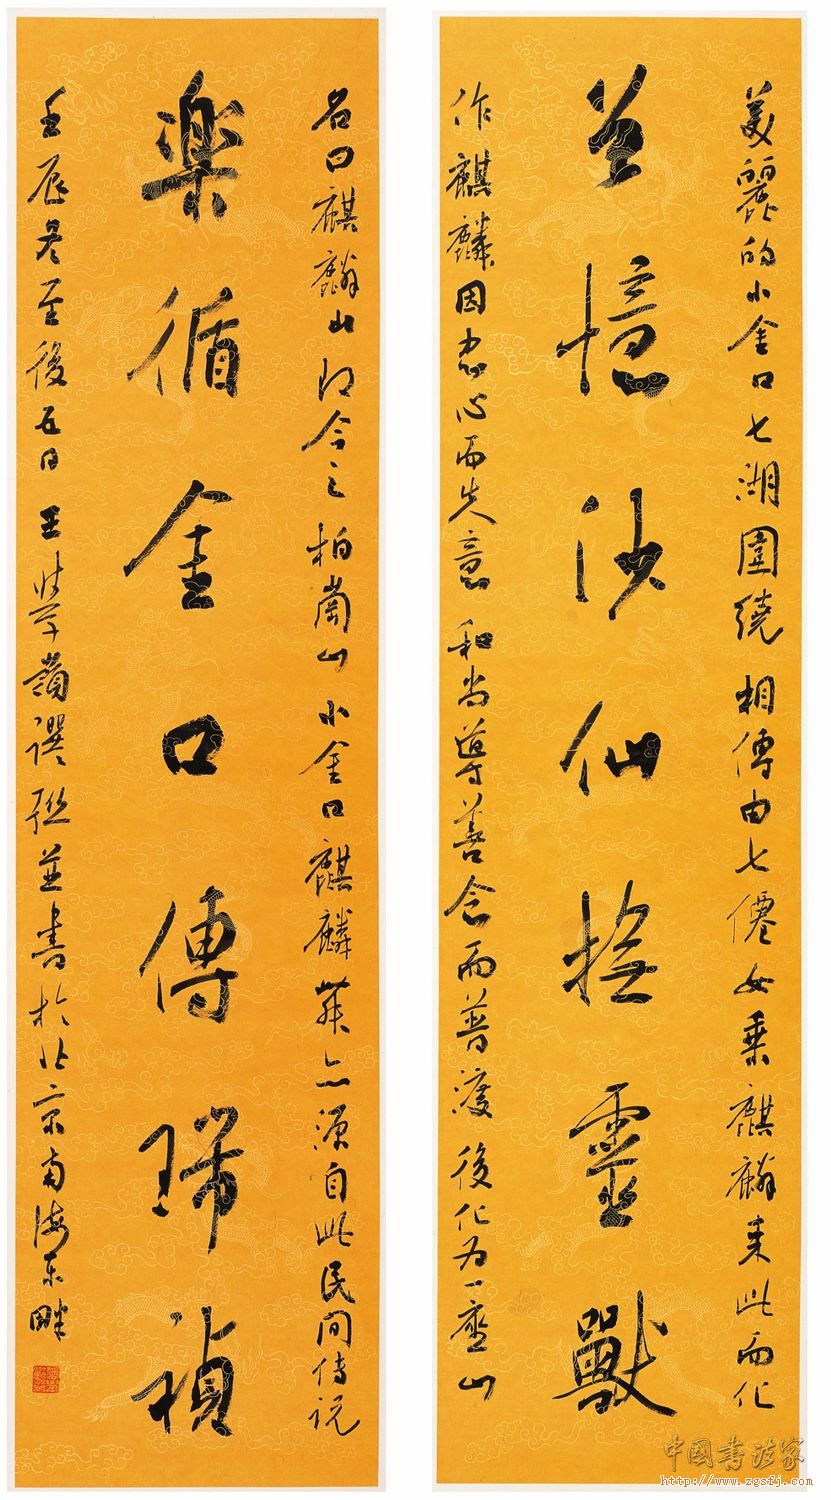 美麗的小金口七湖圍繞相傳由七僊女乘麒麟来此而化
憶仙撫靈獸
作麒麟因忠心而失意和尚導善念而普渡後化为一座山
名曰麒麟山即今之柏崗山小金口麒麟舞亦源自此民间传说
楽循金口傳瑞禎
壬辰冬至後五日王學嶺譔聯並書於北京南海东畔
中國書法家
http://www.zgsfj.com